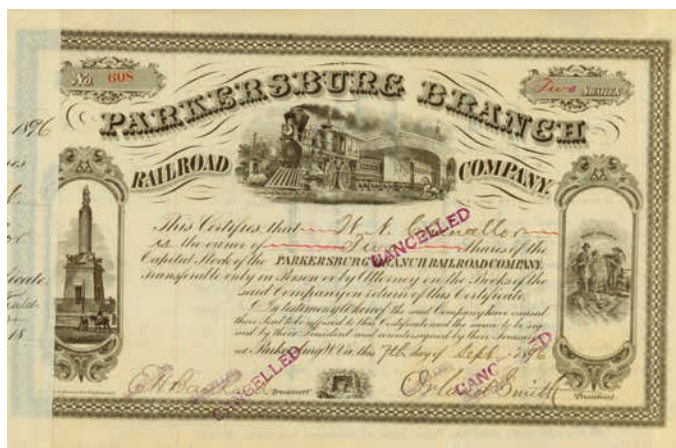 1896
No. 608
Two SHARES
PARKERSBURG BRANCH
RAILROAD COMPANY.
This Certifies, that W. N. Chancellor
is the owner of Two Shares of the
Capital Stock of the PARKERSBURG BRANCH RAILROAD COMPANY.
transferable only in Person or by Attorney on the Books of the
said Company on return of this Certificate.
In testimony Whereof the said Company have caused
their Seal to be affixed to this Certificate and the same to be sig
ned by their President and countersigned by their Treasurer
at Parkersburg W. Va. this 7th day of Sept. 1896
Treasurer
Orland Smith
President
CANCELLED
CANCELLED
CANCELLED